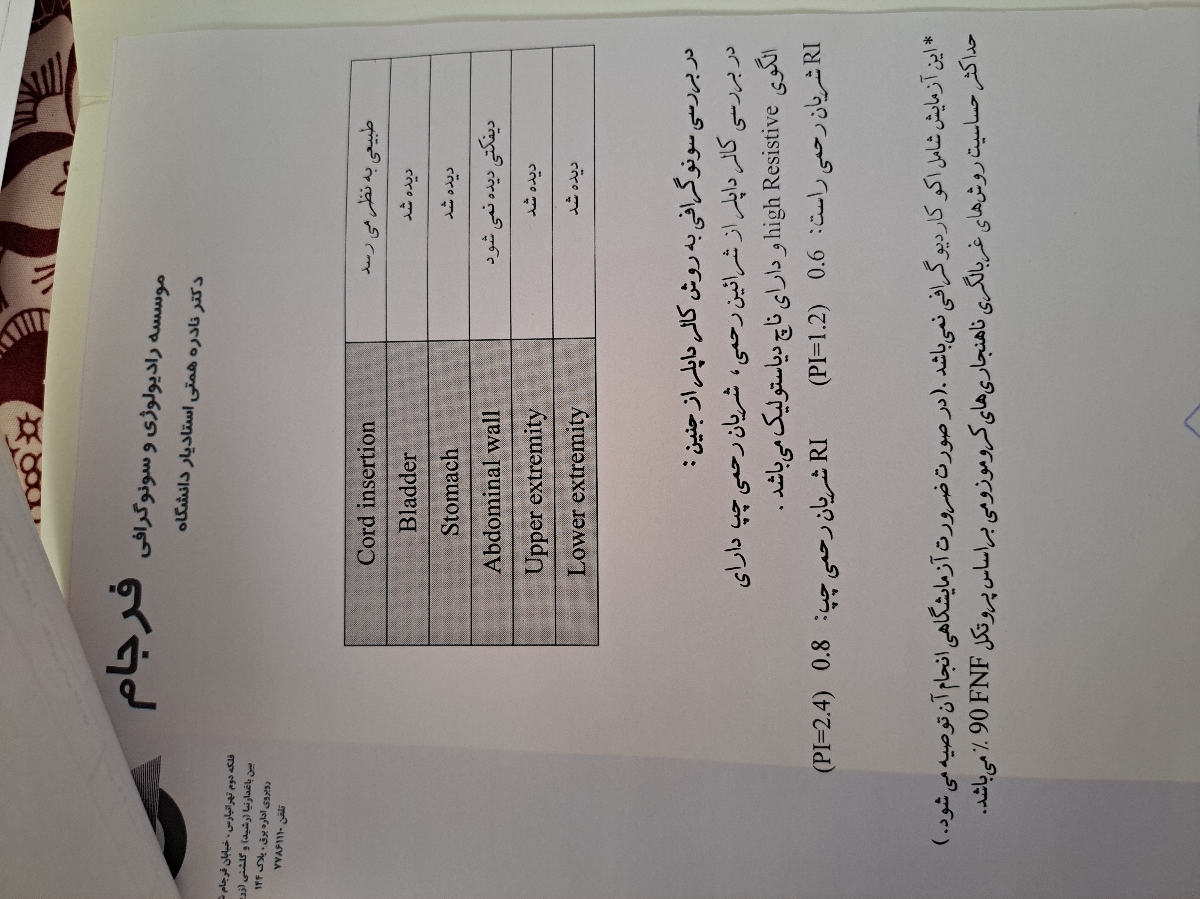 فرجام
موسسه رادیولوژی و سونوگرافی
دکتر نادره همتی استادیار دانشگاه
فلکه دوم تهرانپارس ، خیابان فرجام
بین باغدارنیا (رشید) و گلشنی
روبروی اداره برق ، پلاک ۱۴۴
تلفن ۷۷۸۶۱۱۱۰
Cord insertion طبیعی به نظر می رسد
Bladder دیده شد
Stomach دیده شد
Abdominal wall دیفکتی دیده نمی شود
Upper extremity دیده شد
Lower extremity دیده شد
در بررسی سونوگرافی به روش کالر داپلر از جنین :
در بررسی کالر داپلر از شرائین رحمی ، شریان رحمی چپ دارای
الگوی high Resistive و دارای ناچ دیاستولیک می‌باشد .
RI شریان رحمی راست: 0.6 (PI=1.2) RI شریان رحمی چپ: 0.8 (PI=2.4)
*این آزمایش شامل اکو کاردیوگرافی نمی‌باشد .(در صورت ضرورت آزمایشگاهی انجام آن توصیه می شود. )
حداکثر حساسیت روش‌های غربالگری ناهنجاری‌های کروموزومی براساس پروتکل FNF 90 ٪ می‌باشد.